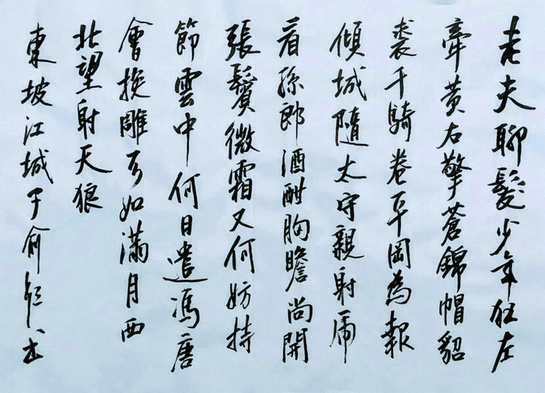 老夫聊髮少年狂左
牽黃右擎蒼錦帽貂
裘千騎卷平岡為報
傾城隨太守親射虎
看孫郎酒酣胸膽尚開
張鬢微霜又何妨持
節雲中何日遣馮唐
會挽雕弓如滿月西
北望射天狼
東坡江城子俞